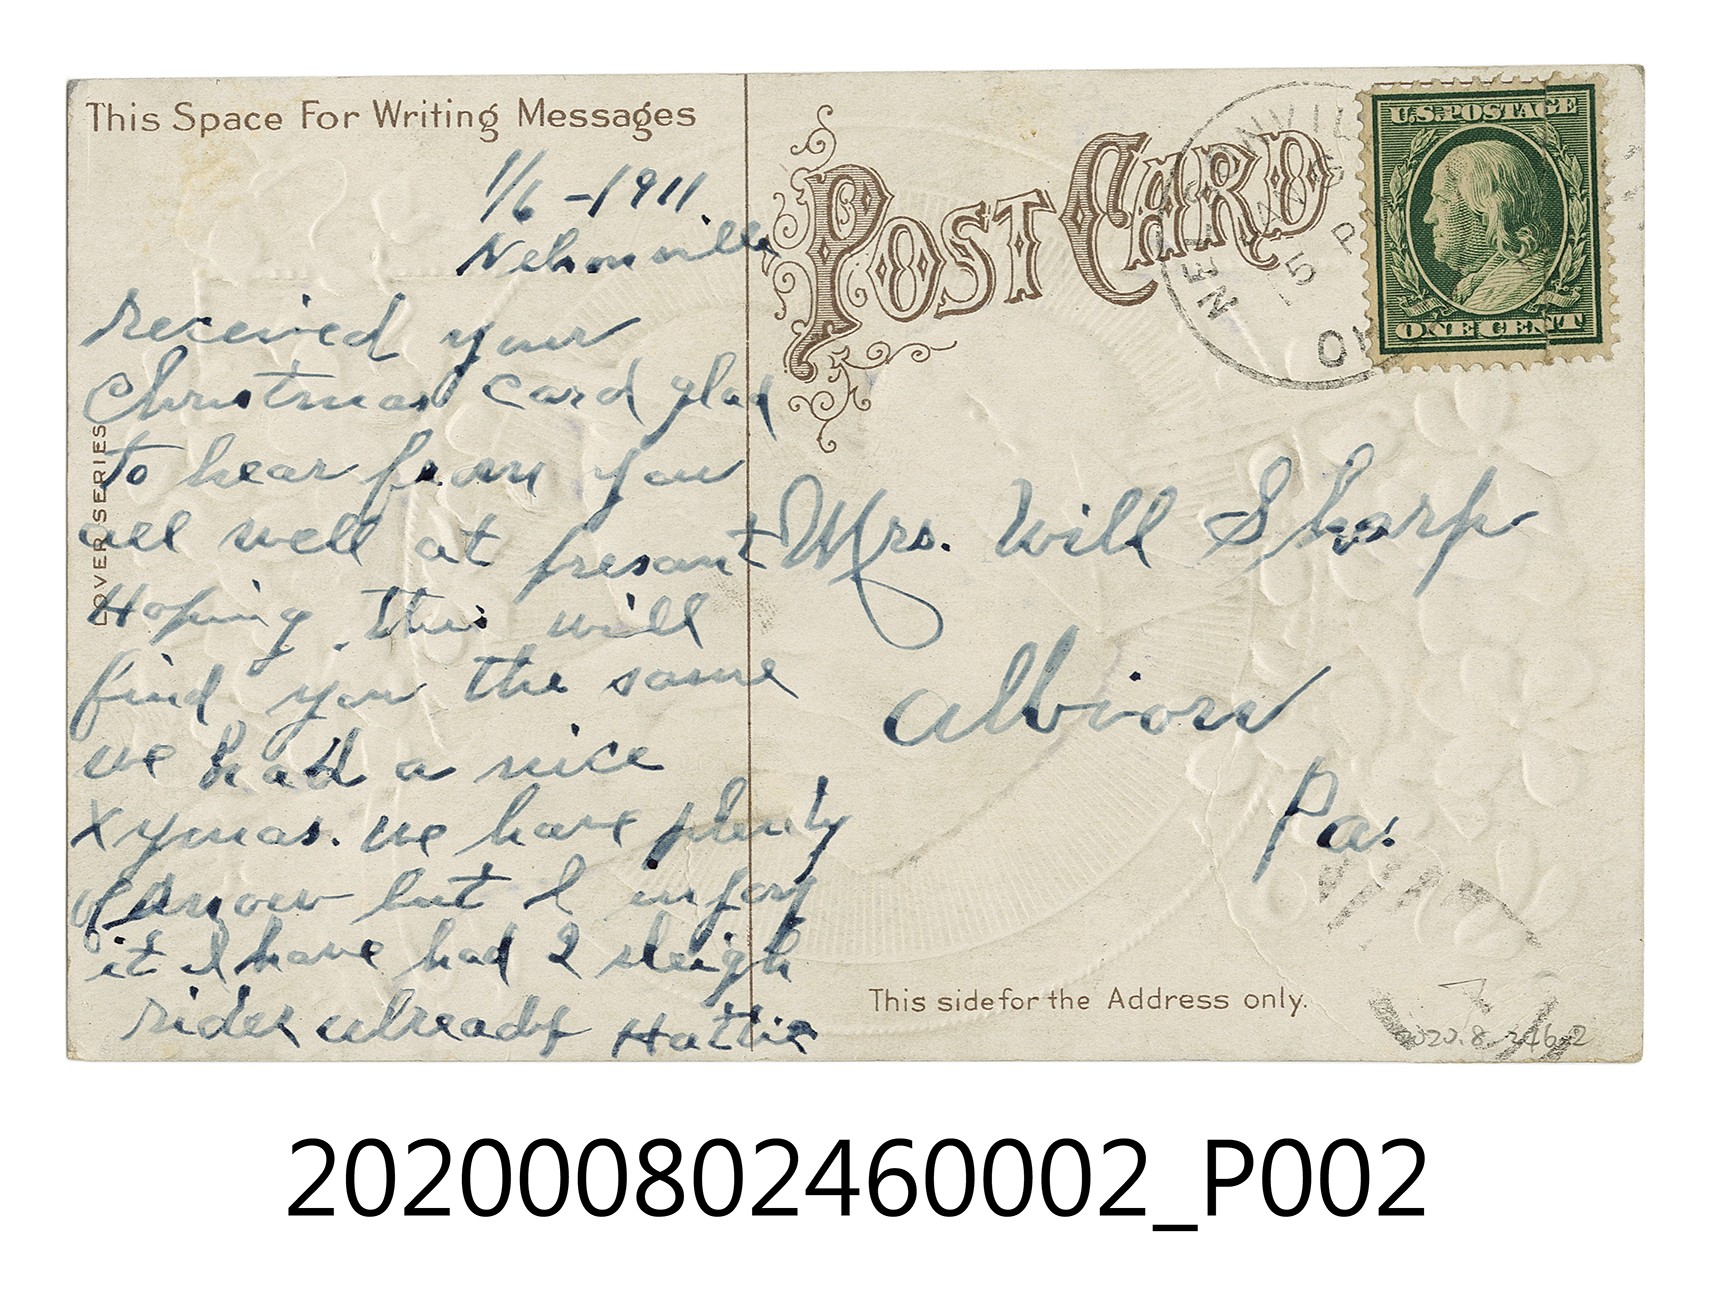 This Space For Writing Messages
1/6 - 1911.
Nelsonville
received your
Christmas card glad
to hear from you
all well at presant
Hoping this will
find you the same
we had a nice
Xymas. we have plenty
of snow but I injoy
it I have had 2 sleigh
rides already Hattie
CLOVER SERIES
POST CARD
NELSONVIL
5 P
OH
U.S. POSTAGE
ONE CENT
Mrs. Will Sharp
Albion
Pa.
This side for the Address only.
2020.8.246.2
202000802460002_P002